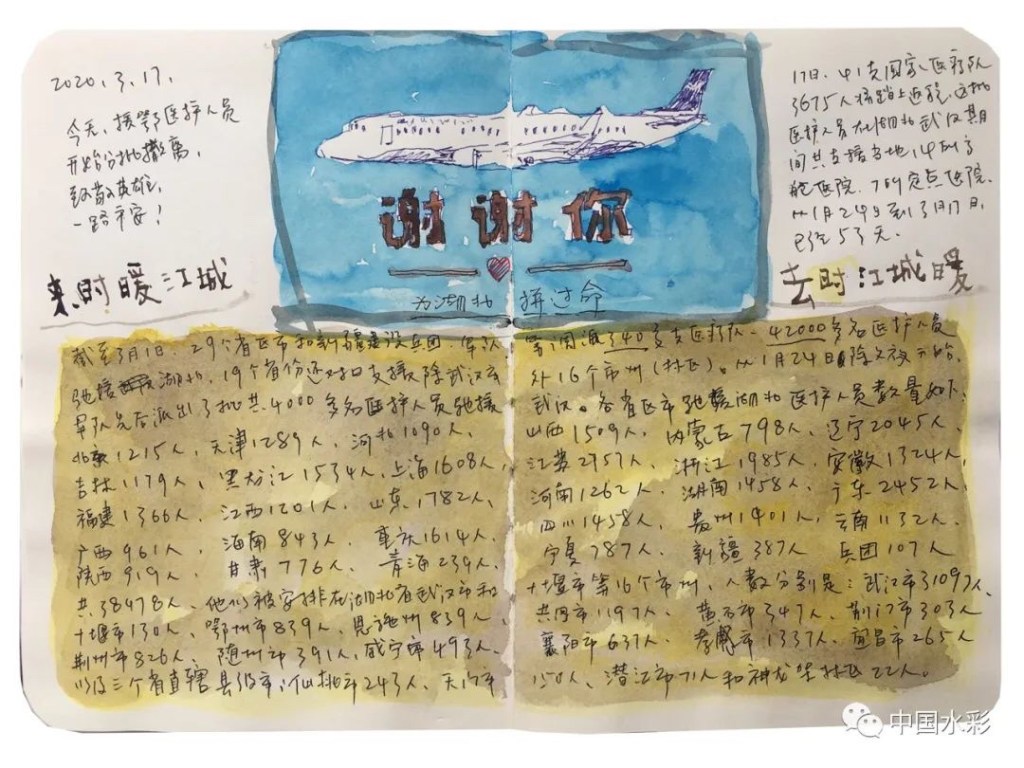 2020.3.17.
今天，援鄂医护人员
开始分批撤离，
致敬英雄，
一路平安！
来时暖江城
谢谢你
为湖北 拼过命
17日，41支国家医疗队
3675人将踏上返程，这批
医护人员在湖北武汉期
间共支援当地14所方
舱医院、7所定点医院。
从1月24日到3月17日，
已经53天。
去时江城暖
截至3月1日，29个省区市和新疆建设兵团、军队 等调派340多支医疗队、42000多名医护人员
驰援湖北，19个省份还对口支援除武汉市 外16个市州（林区）。从1月24日除夕夜开始，
军队先后派出了批共4000多名医护人员驰援 武汉。各省区市驰援湖北医护人员数量如下：
北京1215人，天津1289人，河北1090人， 山西1509人，内蒙古798人，辽宁2045人，
吉林1179人，黑龙江1534人，上海1608人， 江苏2757人，浙江1985人，安徽1324人，
福建1366人，江西1201人，山东1782人， 河南1262人，湖南1458人，广东2452人，
广西961人，海南843人，重庆1614人， 四川1458人，贵州1401人，云南1132人，
陕西919人，甘肃776人，青海239人， 宁夏787人，新疆387人 兵团107人
共38478人，他们被安排在湖北省武汉市和 十堰市等16个市州，人数分别是：武汉市31097人，
十堰市130人，鄂州市839人，恩施州839人， 黄冈市1197人，黄石市347人，荆门市303人
荆州市826人，随州市391人，咸宁市493人， 襄阳市637人，孝感市1337人，宜昌市265人
以及三个省直辖县级市：仙桃市243人、天门市 150人、潜江市71人和神龙架林区22人。
中国水彩